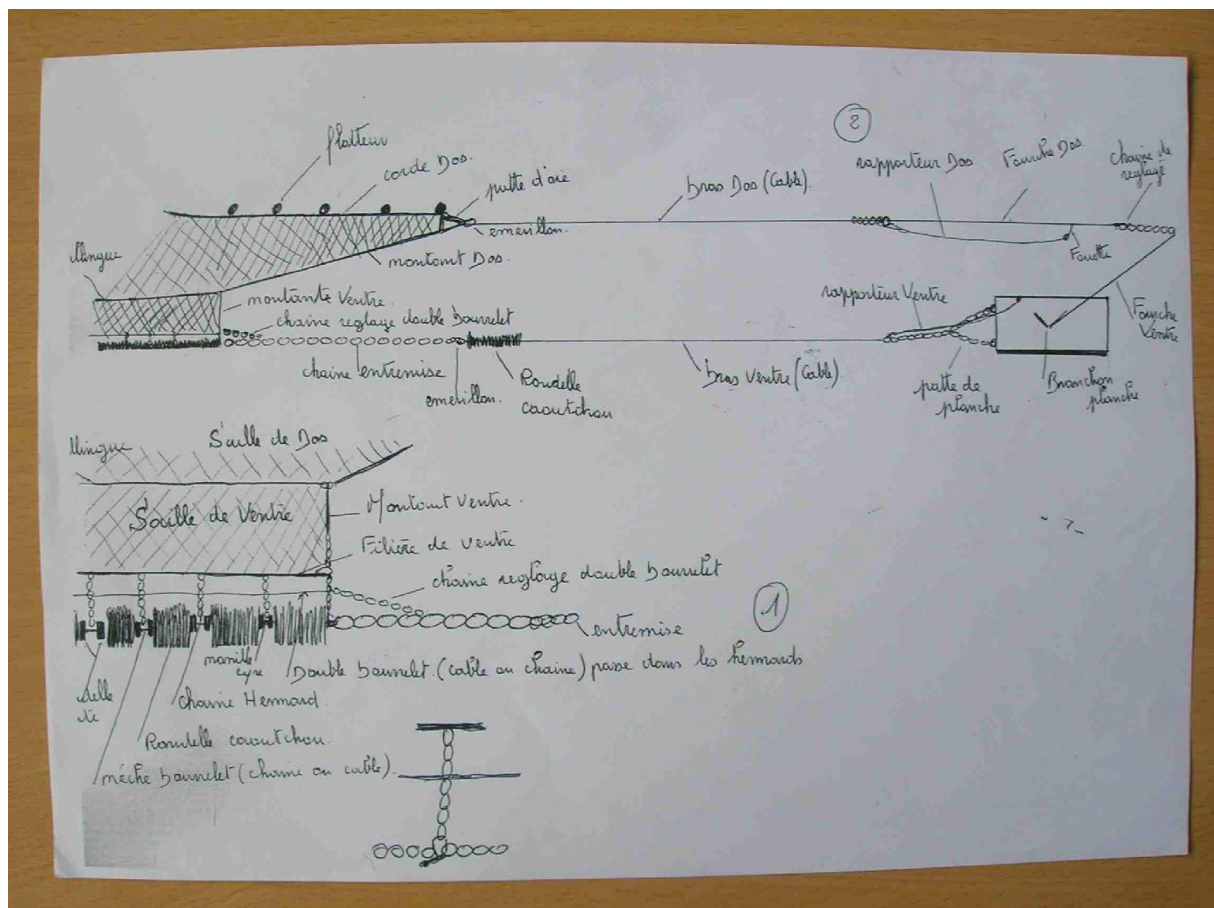 2
flotteur
corde Dos.
patte d'oie
emerillon.
bras Dos (Cable).
rapporteur Dos
Fourche Dos.
chaine de
reglage
montant Dos.
Fouette
llingue
montante Ventre.
chaine reglage double bourrelet
rapporteur Ventre
Fourche
Ventre
chaine entremise
emerillon.
Rondelle
caoutchou
bras Ventre (Cable).
patte de
planche
Branchon
planche
llingue
S'aille de Dos
S'aille de Ventre
Montant Ventre.
Filière de Ventre
chaine reglage double bourrelet
1
entremise
manille
lyre
Double bourrelet. (cable ou chaine) passe dans les hennards
chaine Hennard.
Rondelle caoutchou.
méche bourrelet (chaine ou cable).